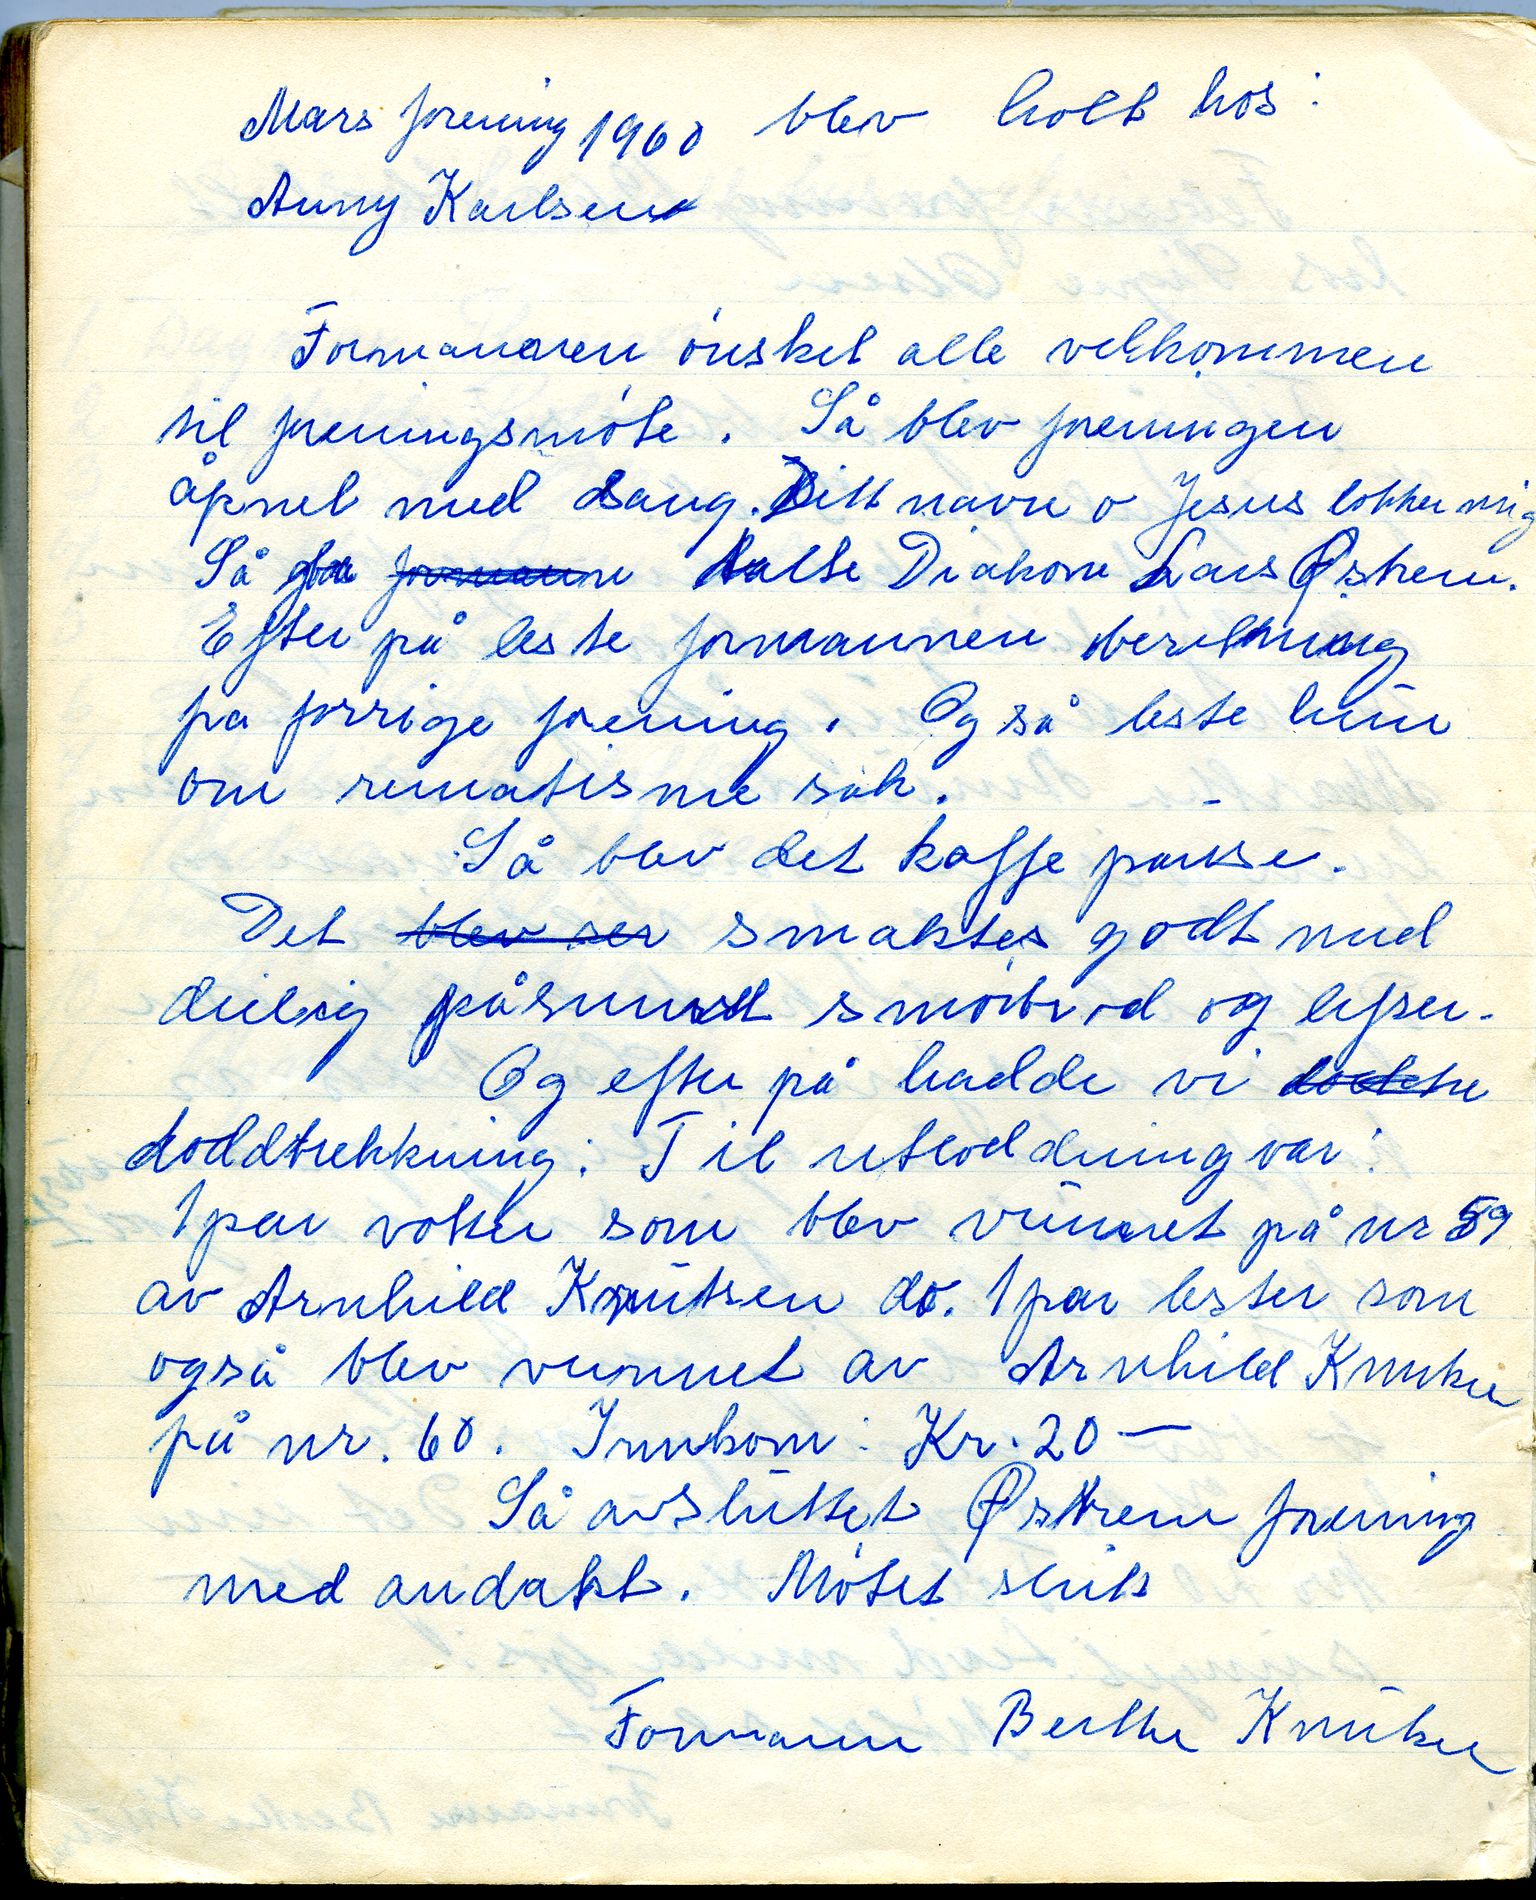 Mars forening 1960 blev holt hos:
Anny Karlsen
Formannen ønsket alle velkommen
til foreningsmøte. Så blev foreningen
åpnet med sang. Ditt navn o Jesus lokker mig
Så formann talte Diakon Lars Østrem.
Efter på leste formannen beretning
på forrige forening. Også leste hun
om rematisme sak.
Så blev det kaffe pause.
Det blev ser smaktes godt med
deilig påsmurt smørbrød og lefser.
Og efter på hadde vi
loddtrekkning. Til utloddning var:
1 par votter som blev vunnet på nr 59
av Arnhild Knutsen do. 1 par lester som
også blev vunnet av Arnhild Knutsen
på nr. 60. Innkom: Kr. 20 —
Så avsluttet Østrem forening
med andakt. Møtet slutt
Formann Berthe Knutsen